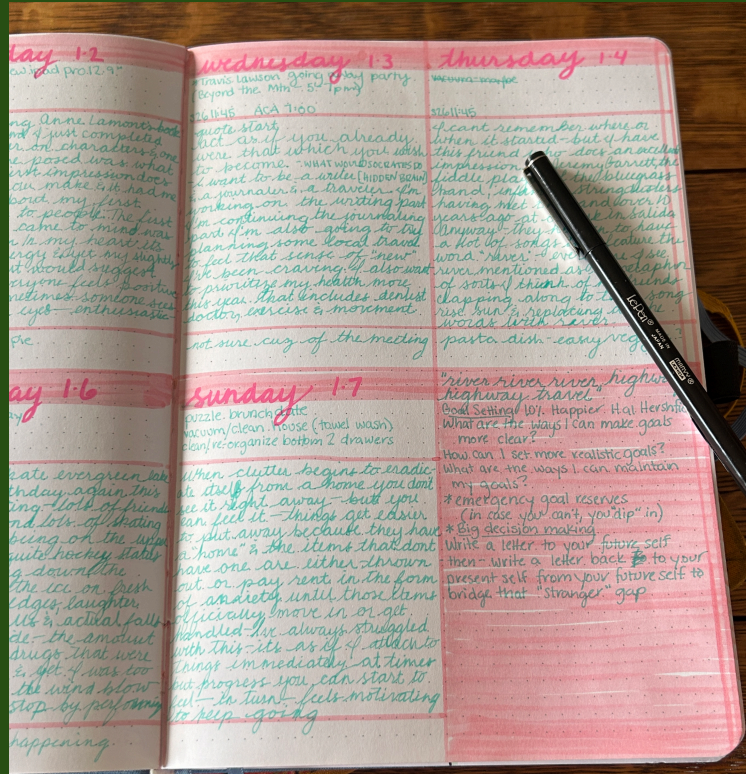 day 1·2
ow ipad pro 12.9"
ng Anne Lamott's book
and I just completed
er on characters & one
e posed was what
rst impression does
cu make & it had me
bout my first
to people. The first
came to mind was
In my heart its
ergy & yet my slightly
t would suggest
veryone feels positive
metimes someone sees
eyes - enthusiastic
wednesday 1·3
*Travis Lawson going away party.
(Beyond the Mtn - 5th 1pm)
926 11:45 ACA 7:00
quote start
act as if you already
were that which you wish
to become. "WHAT WOULD SOCRATES DO
-I want to be a writer [HIDDEN BRAIN]
a journaler & a traveler. I'm
working on the writing part
I'm continuing the journaling
part & I'm also going to try
planning some local travel
to feel that sense of "new"
I've been craving. I also want
to prioritize my health more
this year. that includes dentist
doctor, exercise & movement.
not sure cuz of the meeting
thursday 1·4
vacuum maybe
926 11:45
I cant remember where or
when it started - but I have
this friend who does an excellent
impression
fiddle
hand,
having met
years ago at in Salida
anyway - they to have
a lot of songs feature the
word "river"
river mentioned as
of sorts I think of friends
clapping along to song
rise sun & replacing
words with river
pasta dish - easy
day 1·6
ay
ate evergreen lake
thday again this
ing - lots of friends
nd lots of skating
being on the
quite hockey skates
g down the
the ice on fresh
edges, laughter,
& actual falls
de - the amount
drugs that were
& get. I was too
the wind blow
stop by performing
happening.
sunday 1·7
puzzle. brunch date
vacuum/clean house (towel wash)
clean/re-organize bottom 2 drawers
When clutter begins to eradic-
ate itself from a home you dont
see it right away - but you
can feel it - things get easier
to put away because they have
a "home" & the items that dont
have one are either thrown
out or pay rent in the form
of anxiety until those items
officially move in or get
handled - I've always struggled
with this - its as if I attach to
things immediately at times
but progress you can start to
feel - in turn - feels motivating
to keep going
"river river river, highway
highway travel"
Goal Setting 10% Happier Hal Hershfie
What are the ways I can make goals
more clear?
How can I set more realistic goals?
What are the ways I can maintain
my goals?
*emergency goal reserves
(in case you can't, you "dip" in)
*Big decision making
Write a letter to your future self
then - write a letter back to your
present self from your future self to
bridge that "stranger" gap
Le Pen®
MADE IN JAPAN